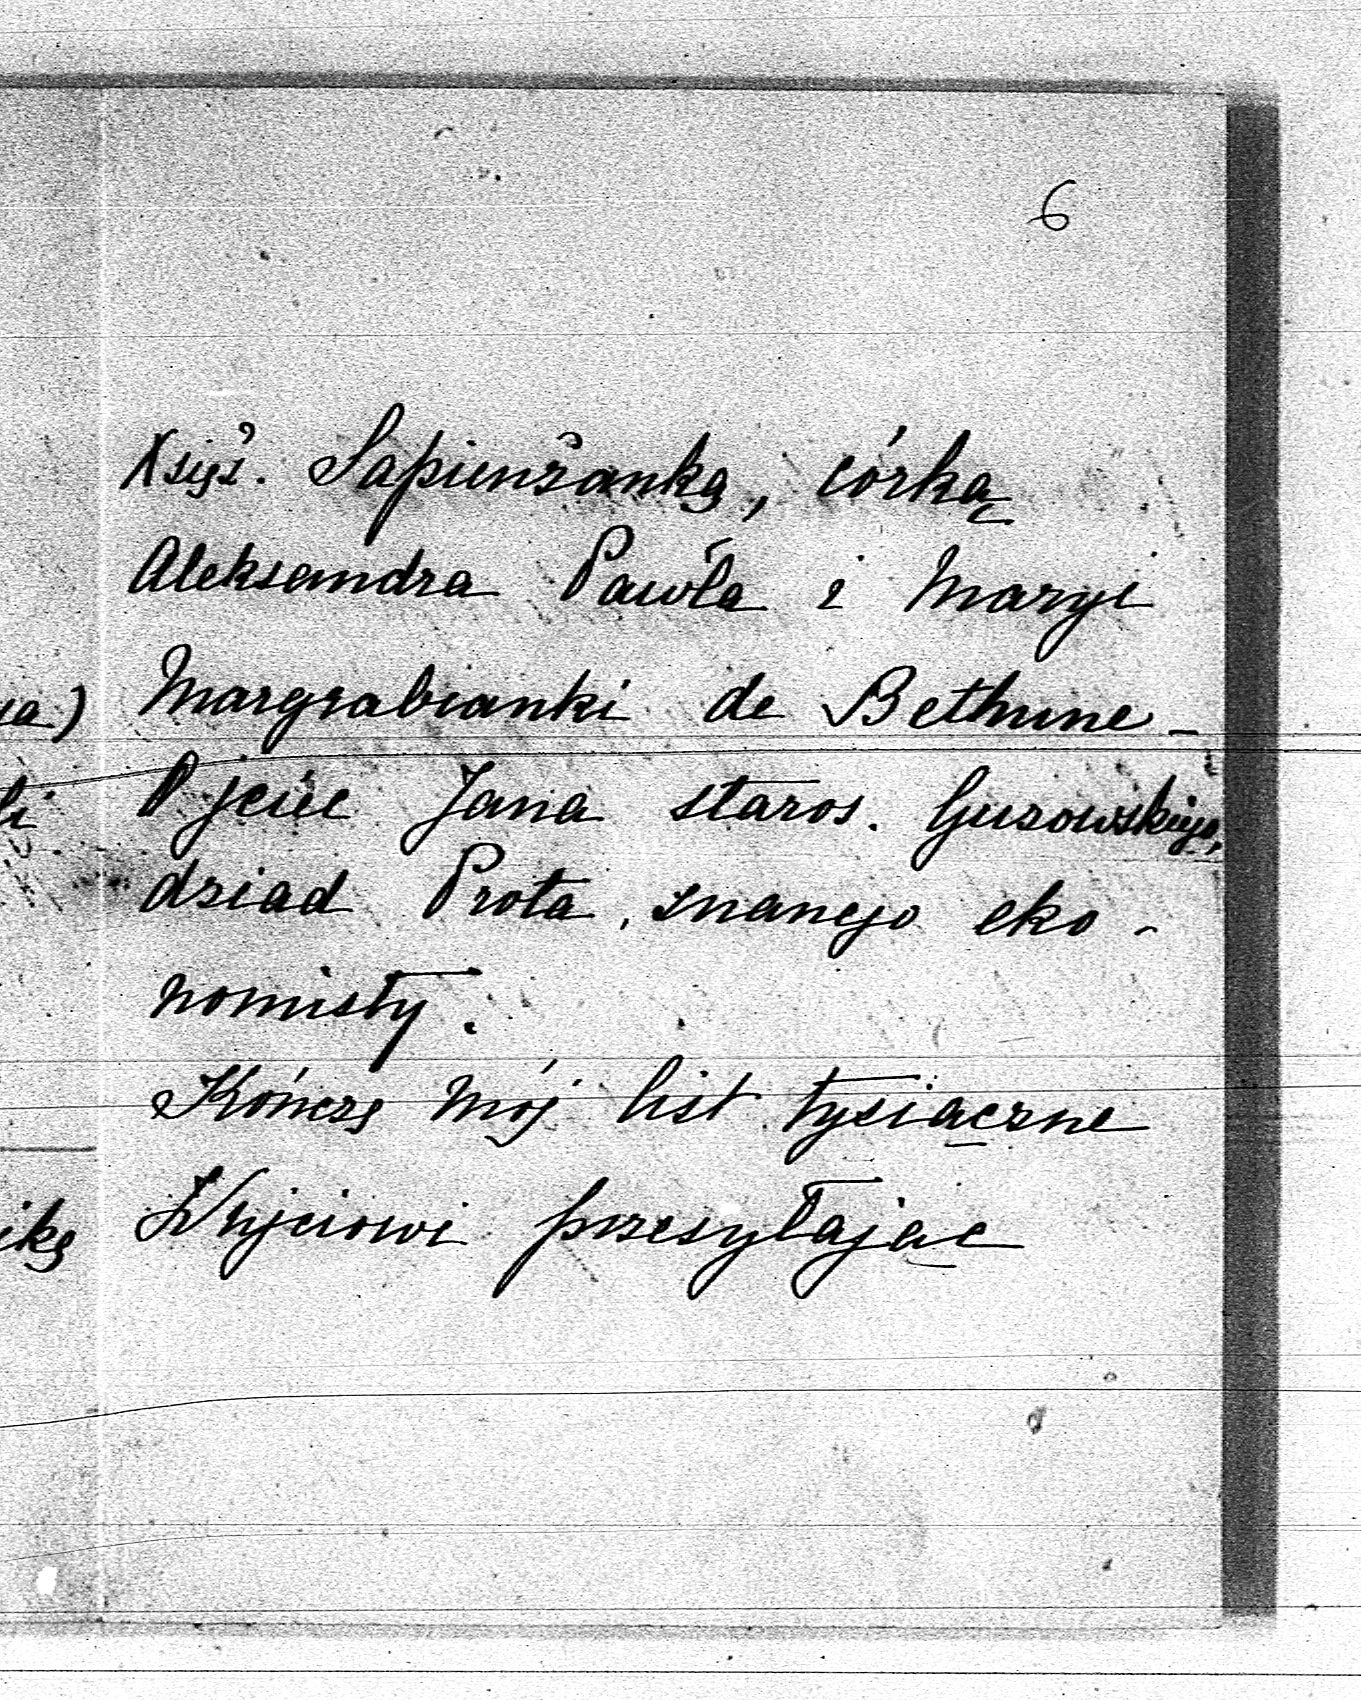 6
Xsięż. Sapieżanką, córką
Aleksandra Pawła i Maryi
Margrabianki de Bethune –
Ojciec Jana staros. Guzowskiego,
dziad Prota, znanego eko-
nomisty.
Kończę mój list tysiączne
Wujciowi przesyłając